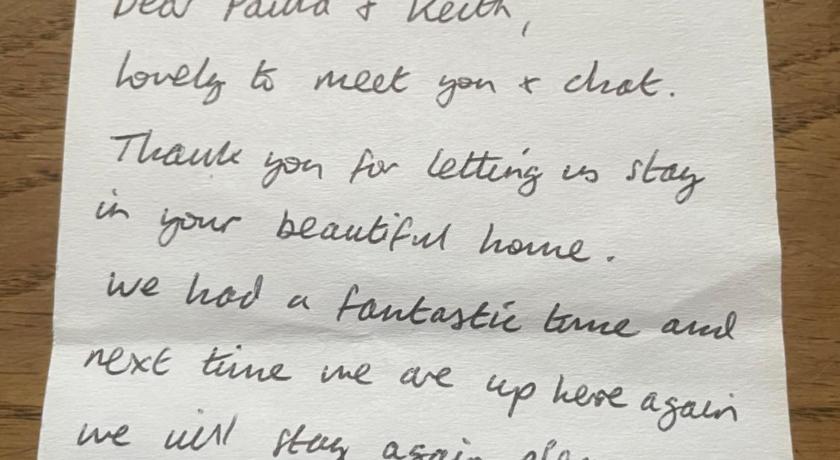 Dear Paula & Keith,
Lovely to meet you & chat.
Thank you for letting us stay
in your beautiful home.
We had a fantastic time and
next time we are up here again
we will stay again